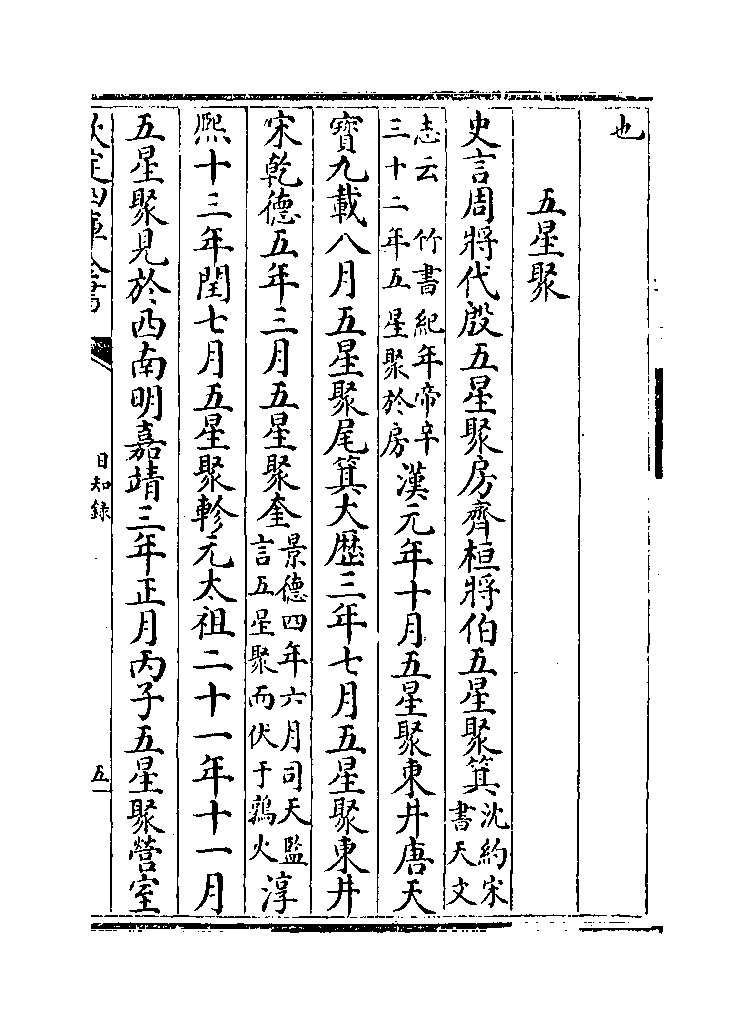 也
五星聚
史言周將代殷五星聚房齊桓將伯五星聚箕沈約宋書天文
志云 竹書紀年帝辛三十二年五星聚於房漢元年十月五星聚東井唐天
寳九載八月五星聚尾箕大歴三年七月五星聚東井
宋乾德五年三月五星聚奎景德四年六月司天監言五星聚而伏于鶉火淳
熈十三年閏七月五星聚軫元太祖二十一年十一月
五星聚見於西南明嘉靖三年正月丙子五星聚營室
欽定四庫全書
日知錄
五